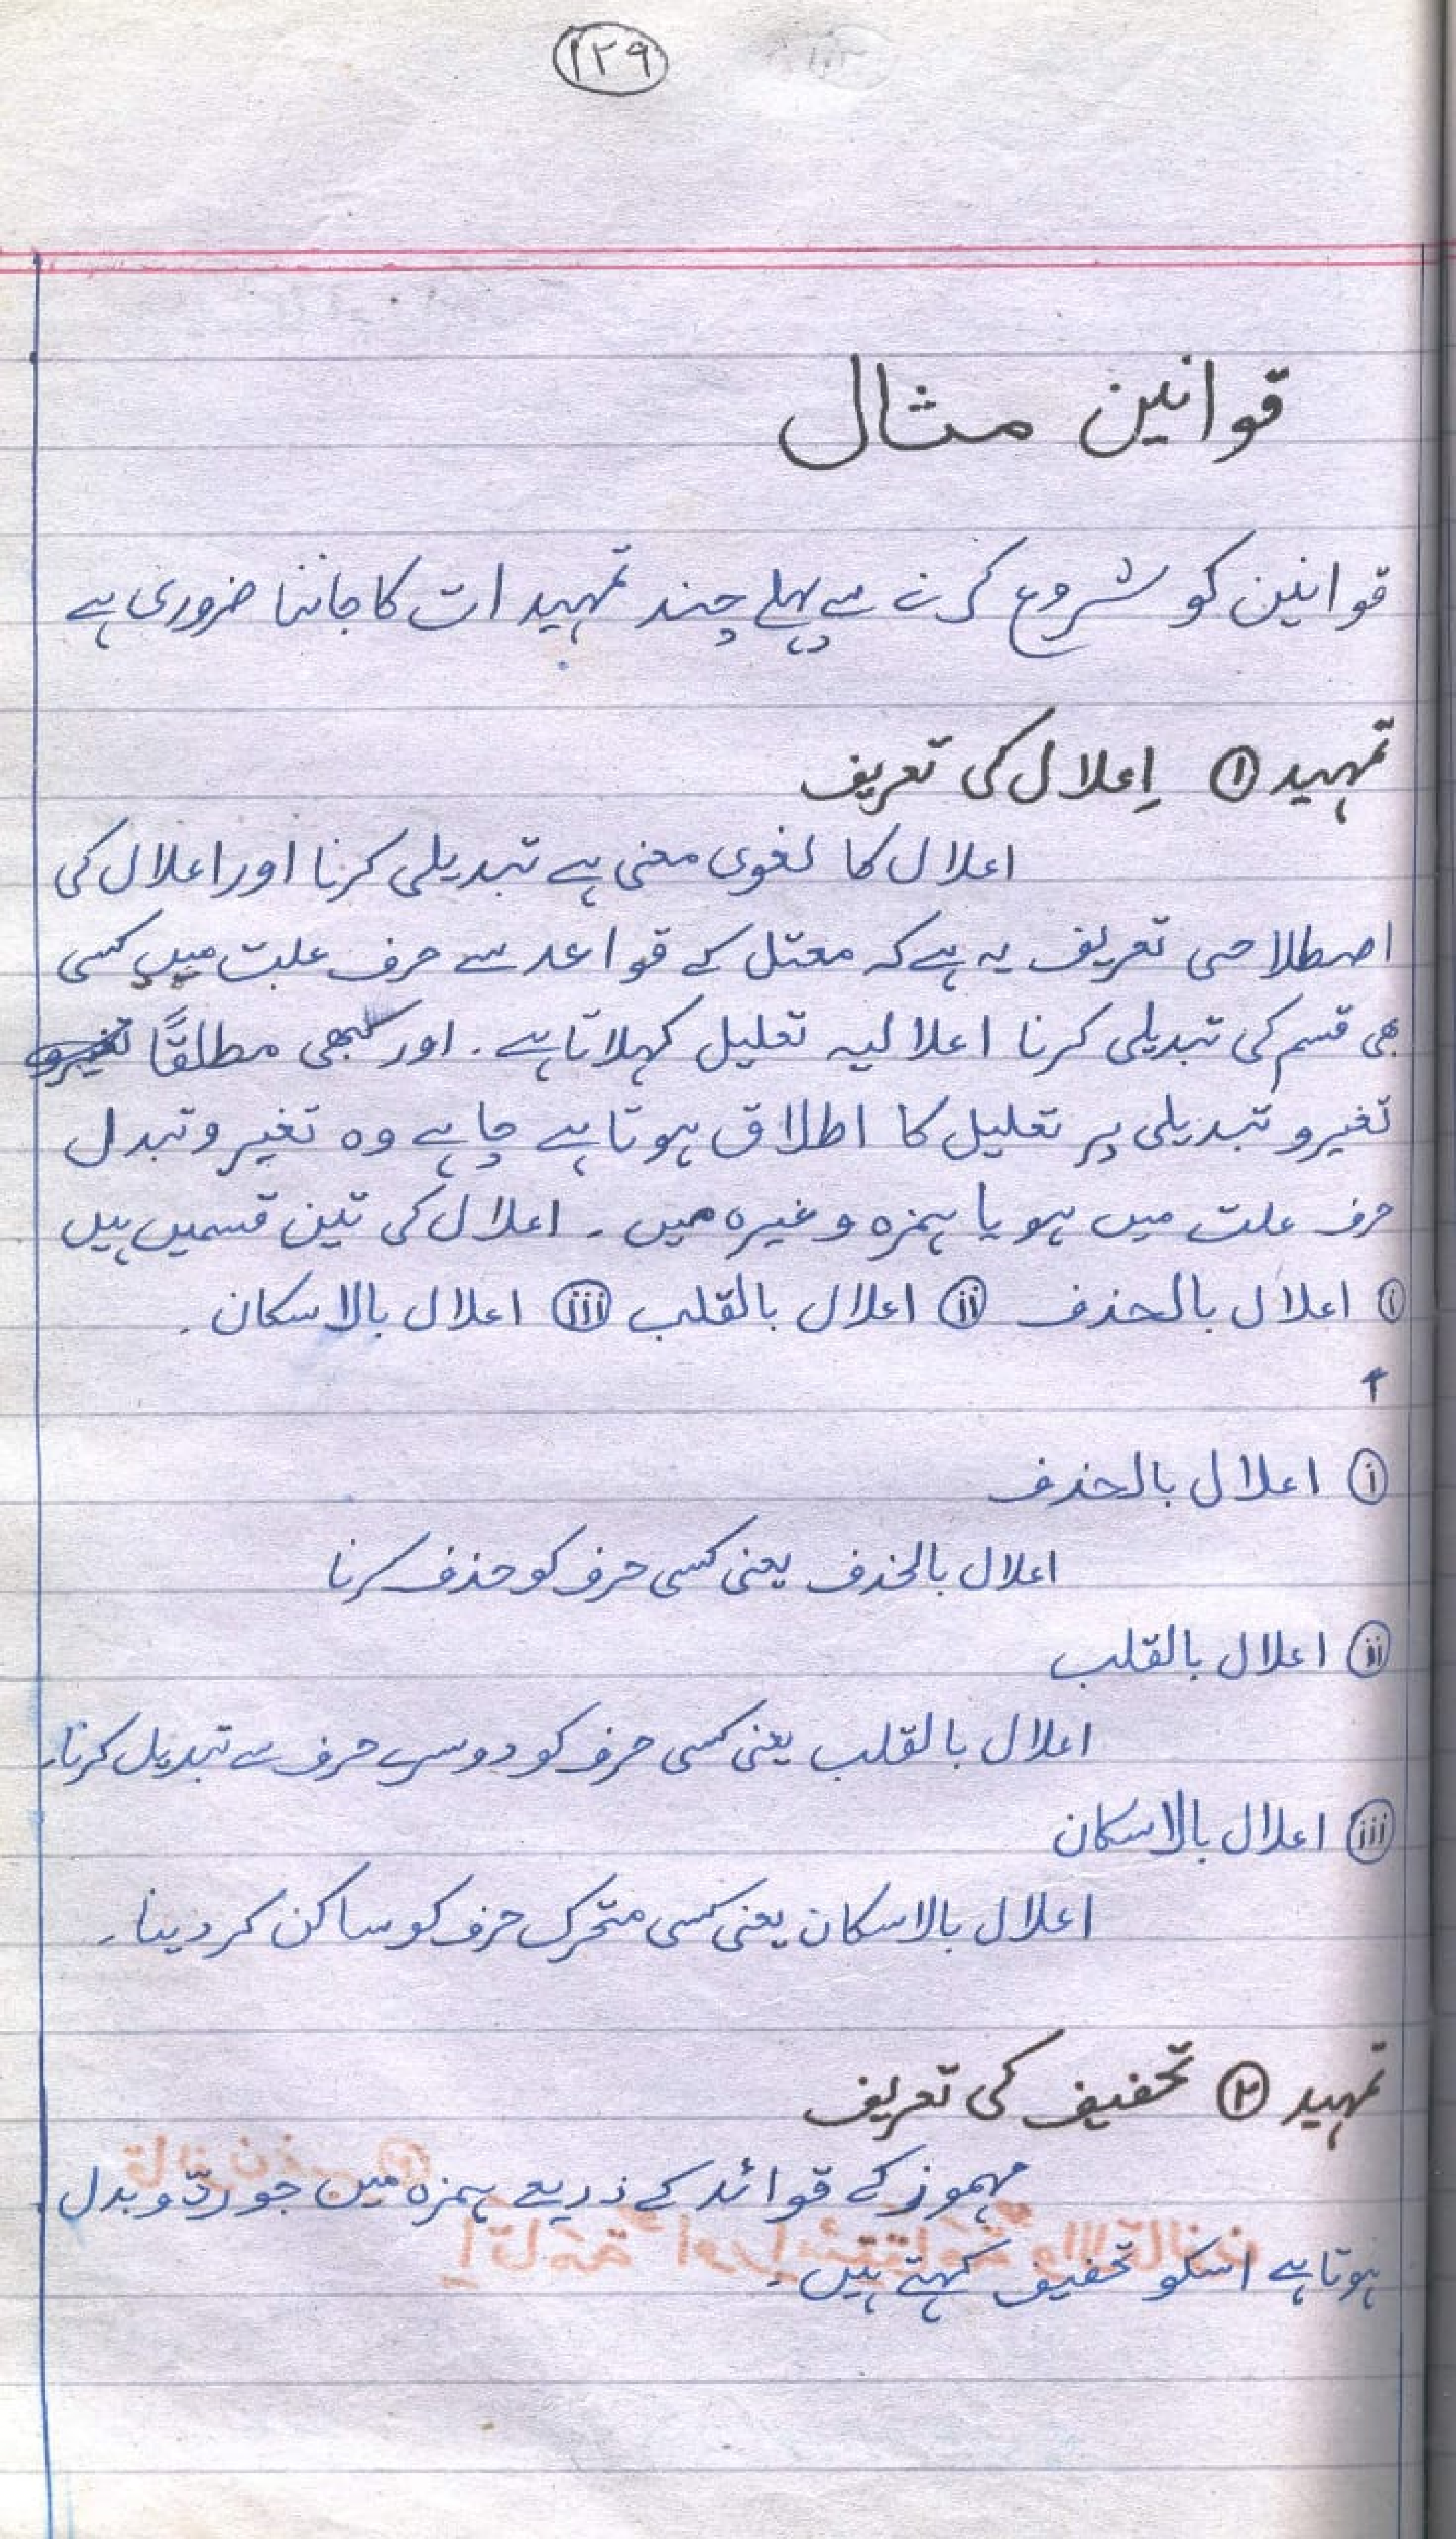 ۱۲۹
قوانین مثال
قوانین کو شروع کرنے سے پہلے چند تمہیدات کا جاننا ضروری ہے
تمہید ① اِعلال کی تعریف
اعلال کا لغوی معنی ہے تبدیلی کرنا اور اعلال کی
اصطلاحی تعریف یہ ہے کہ معتل کے قواعد سے حرف علت میں کسی
بھی قسم کی تبدیلی کرنا اعلالیہ تعلیل کہلاتا ہے۔ اور کبھی مطلقًا
تغیر و تبدیلی پر تعلیل کا اطلاق ہوتا ہے چاہے وہ تغیر و تبدل
حرف علت میں ہو یا ہمزہ وغیرہ میں۔ اعلال کی تین قسمیں ہیں
ⓘ اعلال بالحذف (ii) اعلال بالقلب (iii) اعلال بالاسکان۔
ⓘ اعلال بالحذف
اعلال بالحذف یعنی کسی حرف کو حذف کرنا
(ii) اعلال بالقلب
اعلال بالقلب یعنی کسی حرف کو دوسرے حرف سے تبدیل کرنا۔
(iii) اعلال بالاسکان
اعلال بالاسکان یعنی کسی متحرک حرف کو ساکن کر دینا۔
تمہید ② تخفیف کی تعریف
مہموز کے قوائد کے ذریعے ہمزہ میں جو ردّ و بدل
ہوتا ہے اسکو تخفیف کہتے ہیں۔